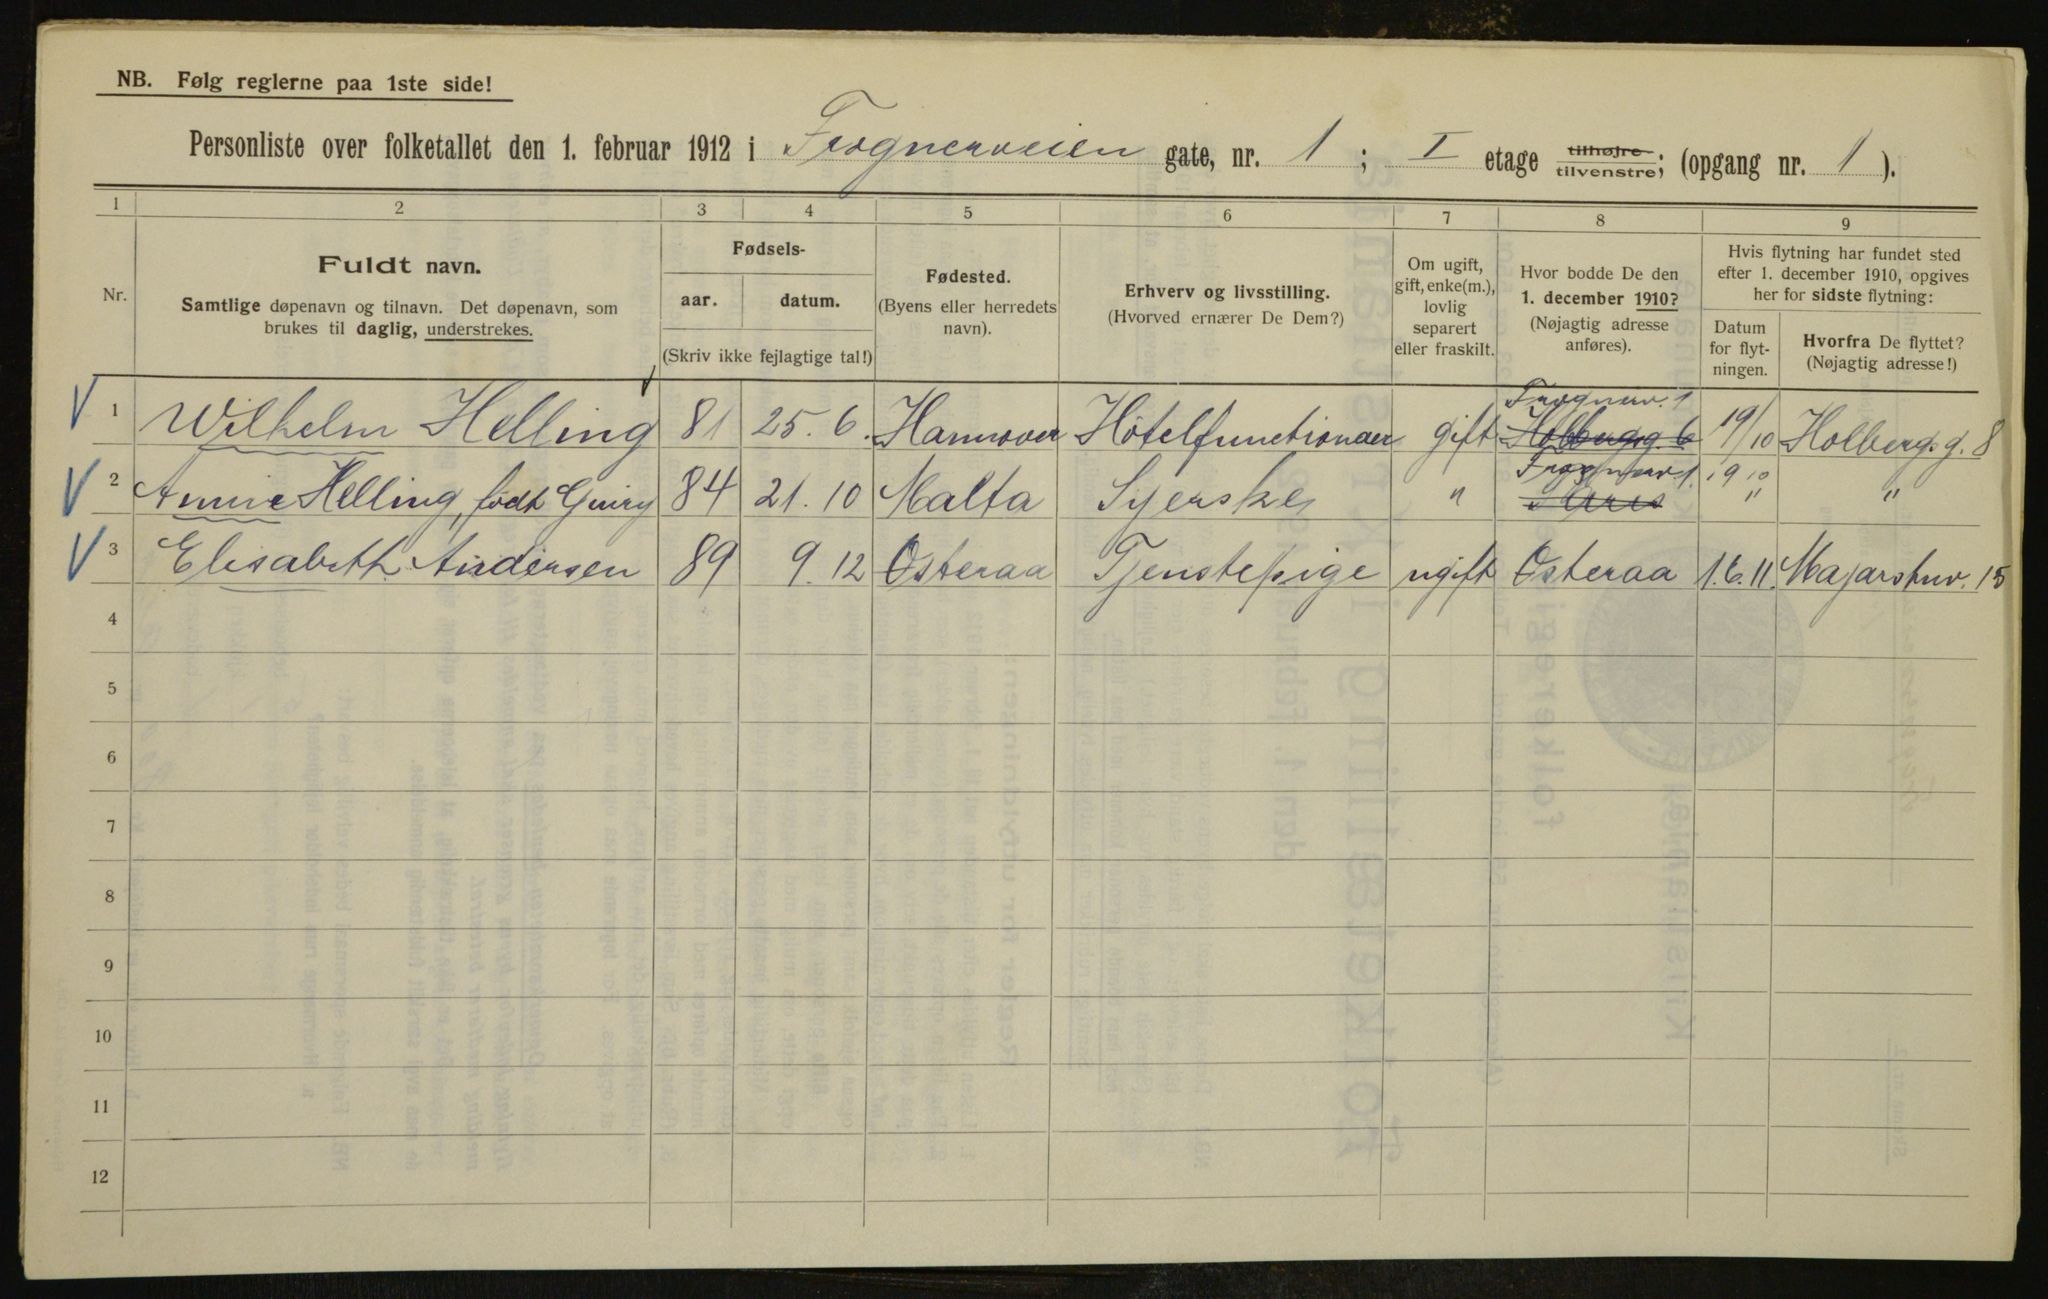 NB. Følg reglerne paa 1ste side!
Personliste over folketallet den 1. februar 1912 i Frognerveien gate, nr. 1 ; I etage tilhøjre tilvenstre; (opgang nr. 1 ).
1 2 3 4 5 6 7 8 9
Nr.
Fuldt navn.
Samtlige døpenavn og tilnavn. Det døpenavn, som
brukes til daglig, understrekes.
Fødsels-
aar. datum.
(Skriv ikke fejlagtige tal!)
Fødested.
(Byens eller herredets
navn).
Erhverv og livsstilling.
(Hvorved ernærer De Dem?)
Om ugift,
gift, enke(m.),
lovlig
separert
eller fraskilt.
Hvor bodde De den
1. december 1910?
(Nøjagtig adresse
anføres).
Hvis flytning har fundet sted
efter 1. december 1910, opgives
her for sidste flytning:
Datum
for flyt-
ningen.
Hvorfra De flyttet?
(Nøjagtig adresse!)
Frognerv. 1
1 Wilhelm Helling 81 25. 6. Hannover Hôtelfunctionær gift Holbergsg. 6 19/10 Holbergsg. 8
Frognerv 1.
2 Annie Helling, født 84 21. 10 Malta Syerske " 19 10 " "
3 Elisabeth Andersen 89 9. 12 Osteraa Tjenstepige ugift Osteraa 1.6.11. Majorstuv. 15
4
5
6
7
8
9
10
11
12